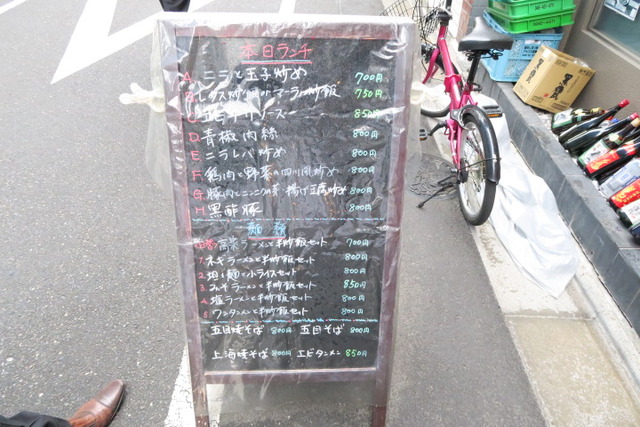 本日ランチ
A ニラと玉子炒め 700円
炒飯 or マーラー炒飯 750円
ソース 850円
D. 青椒肉絲 800円
E ニラレバ炒め 800円
F. 鶏肉と野菜の四川風炒め 800円
G. 豚肉とニンニクの芽・揚げ豆腐炒め 800円
H 黒酢豚 800円
麺・飯
高菜ラーメンと半炒飯セット 700円
1. ネギラーメンと半炒飯セット 800円
2. 担々麺と小ライスセット 800円
3. みそラーメンと半炒飯セット 850円
4. 塩ラーメンと半炒飯セット 800円
5 ワンタンメンと半炒飯セット 800円
五目焼そば 800円 五目そば 800円
上海焼そば 800円 エビタンメン 850円